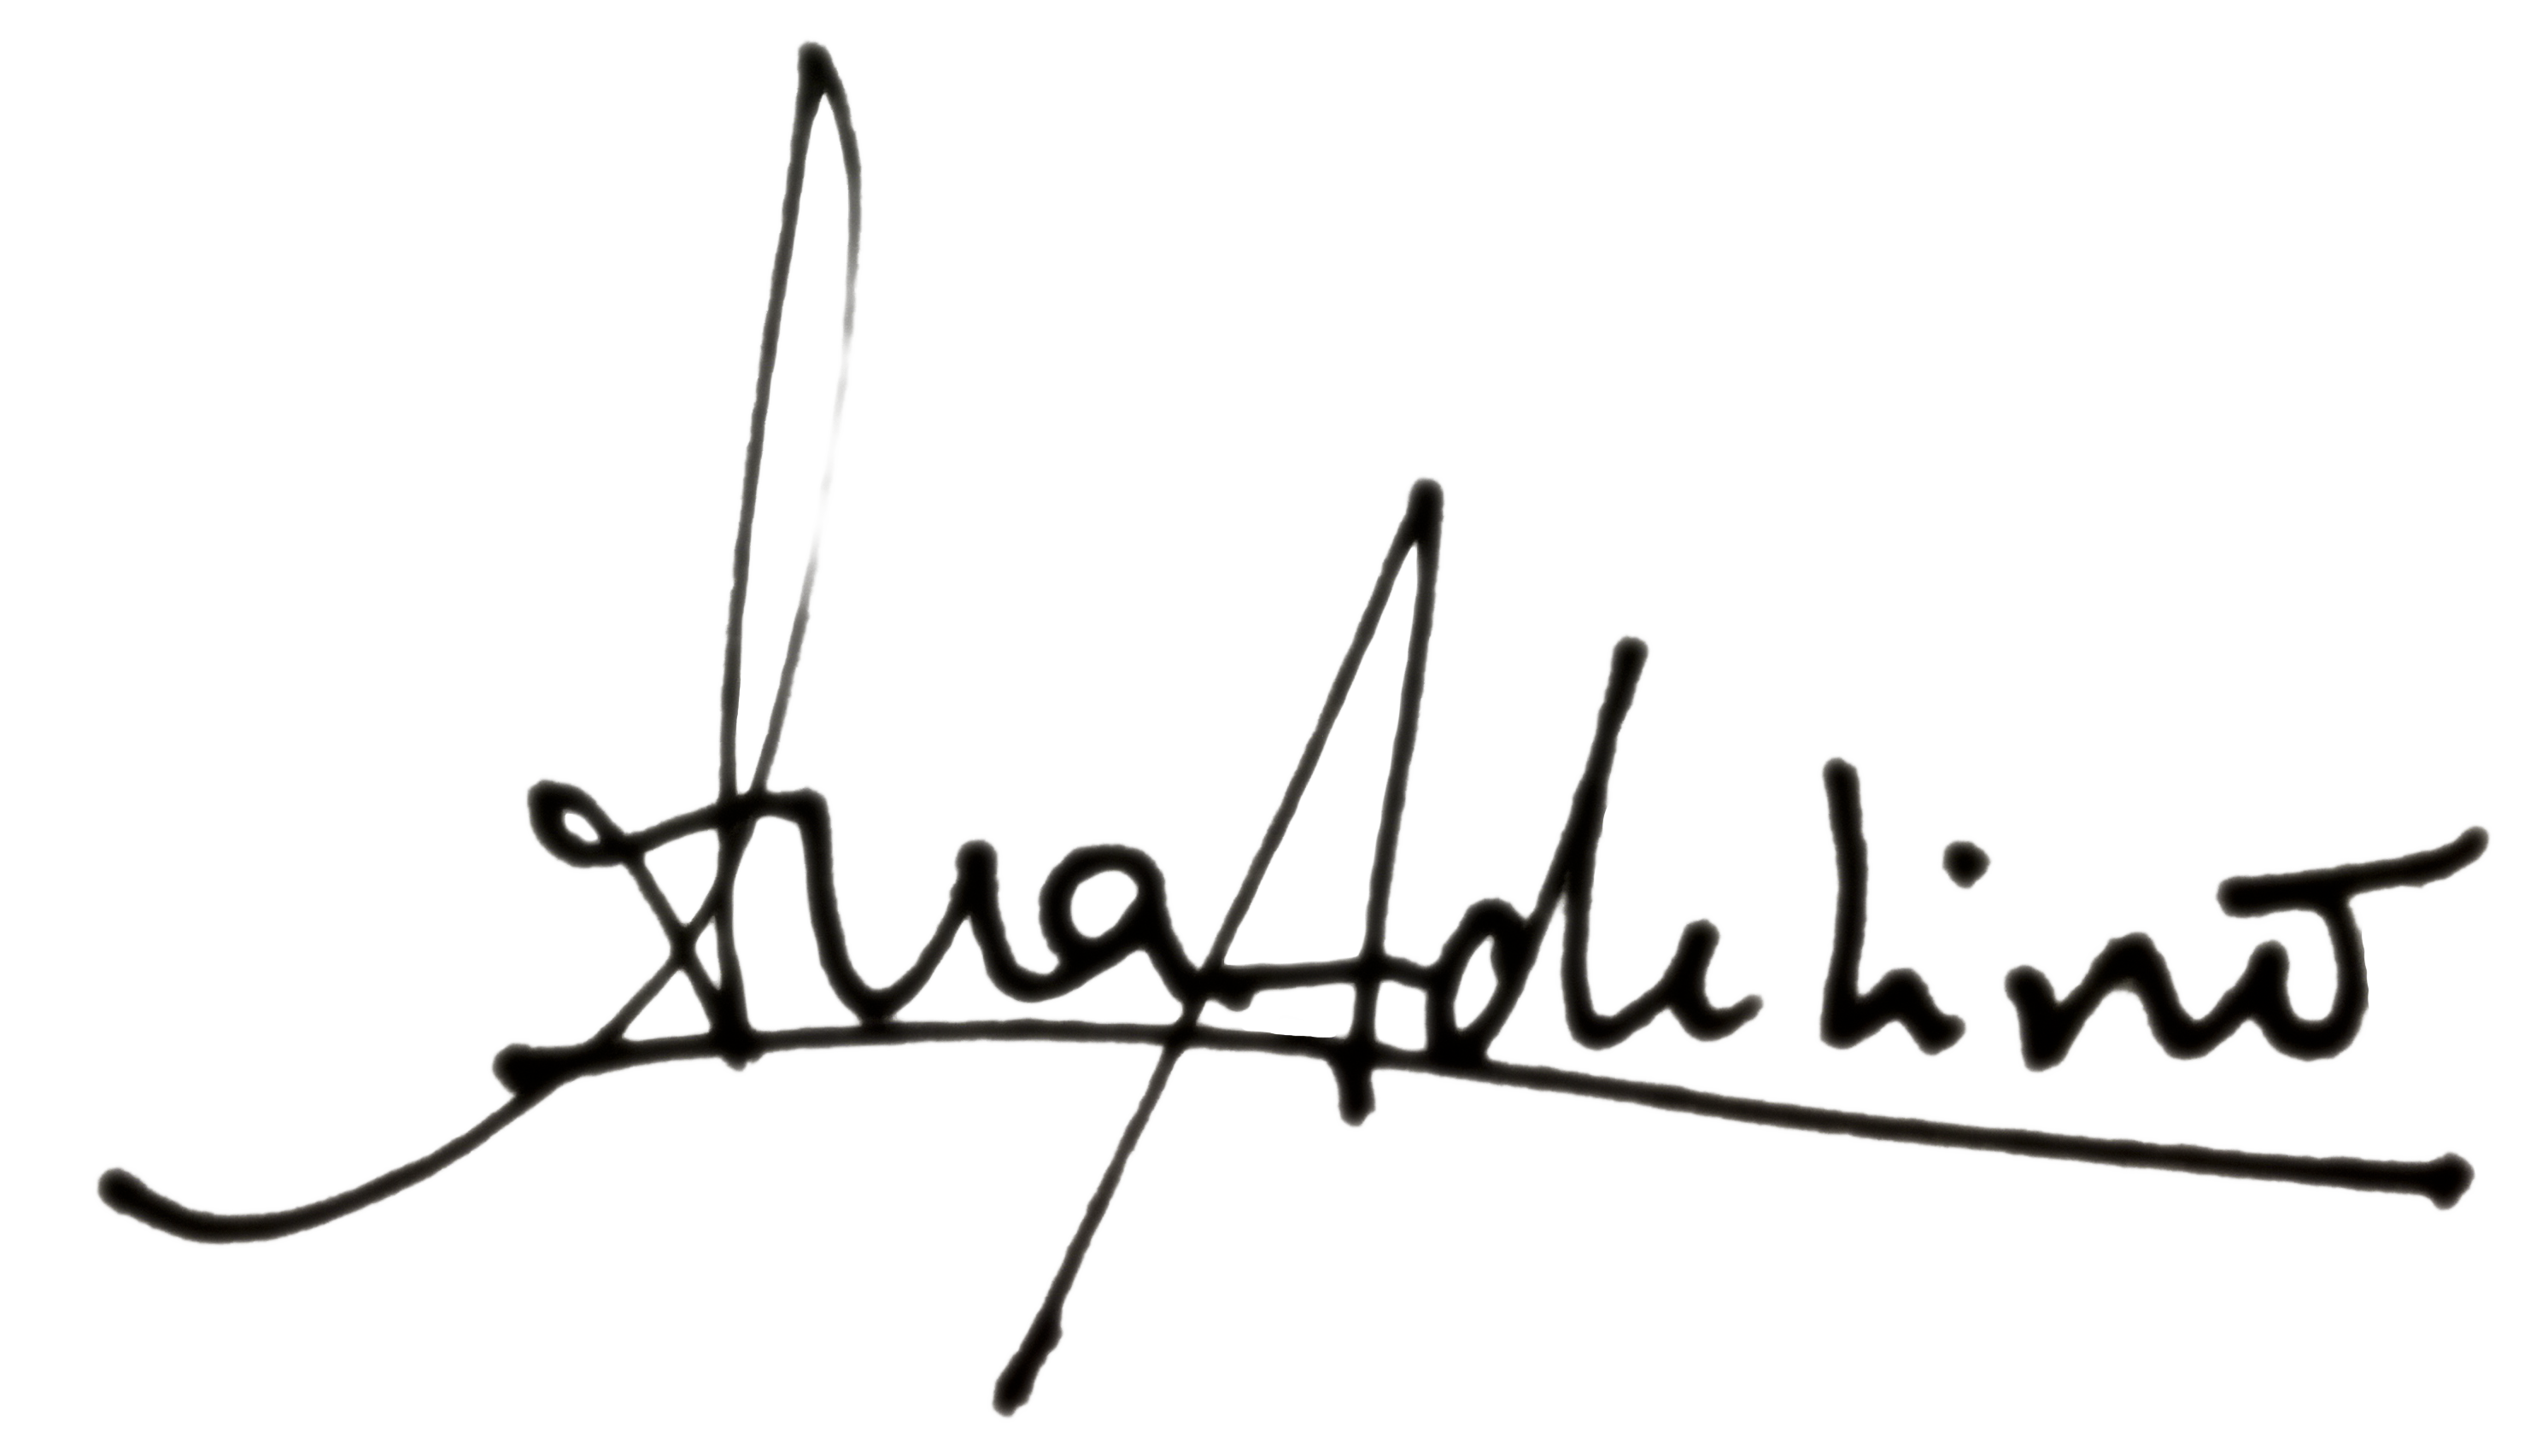 Ana Adelino